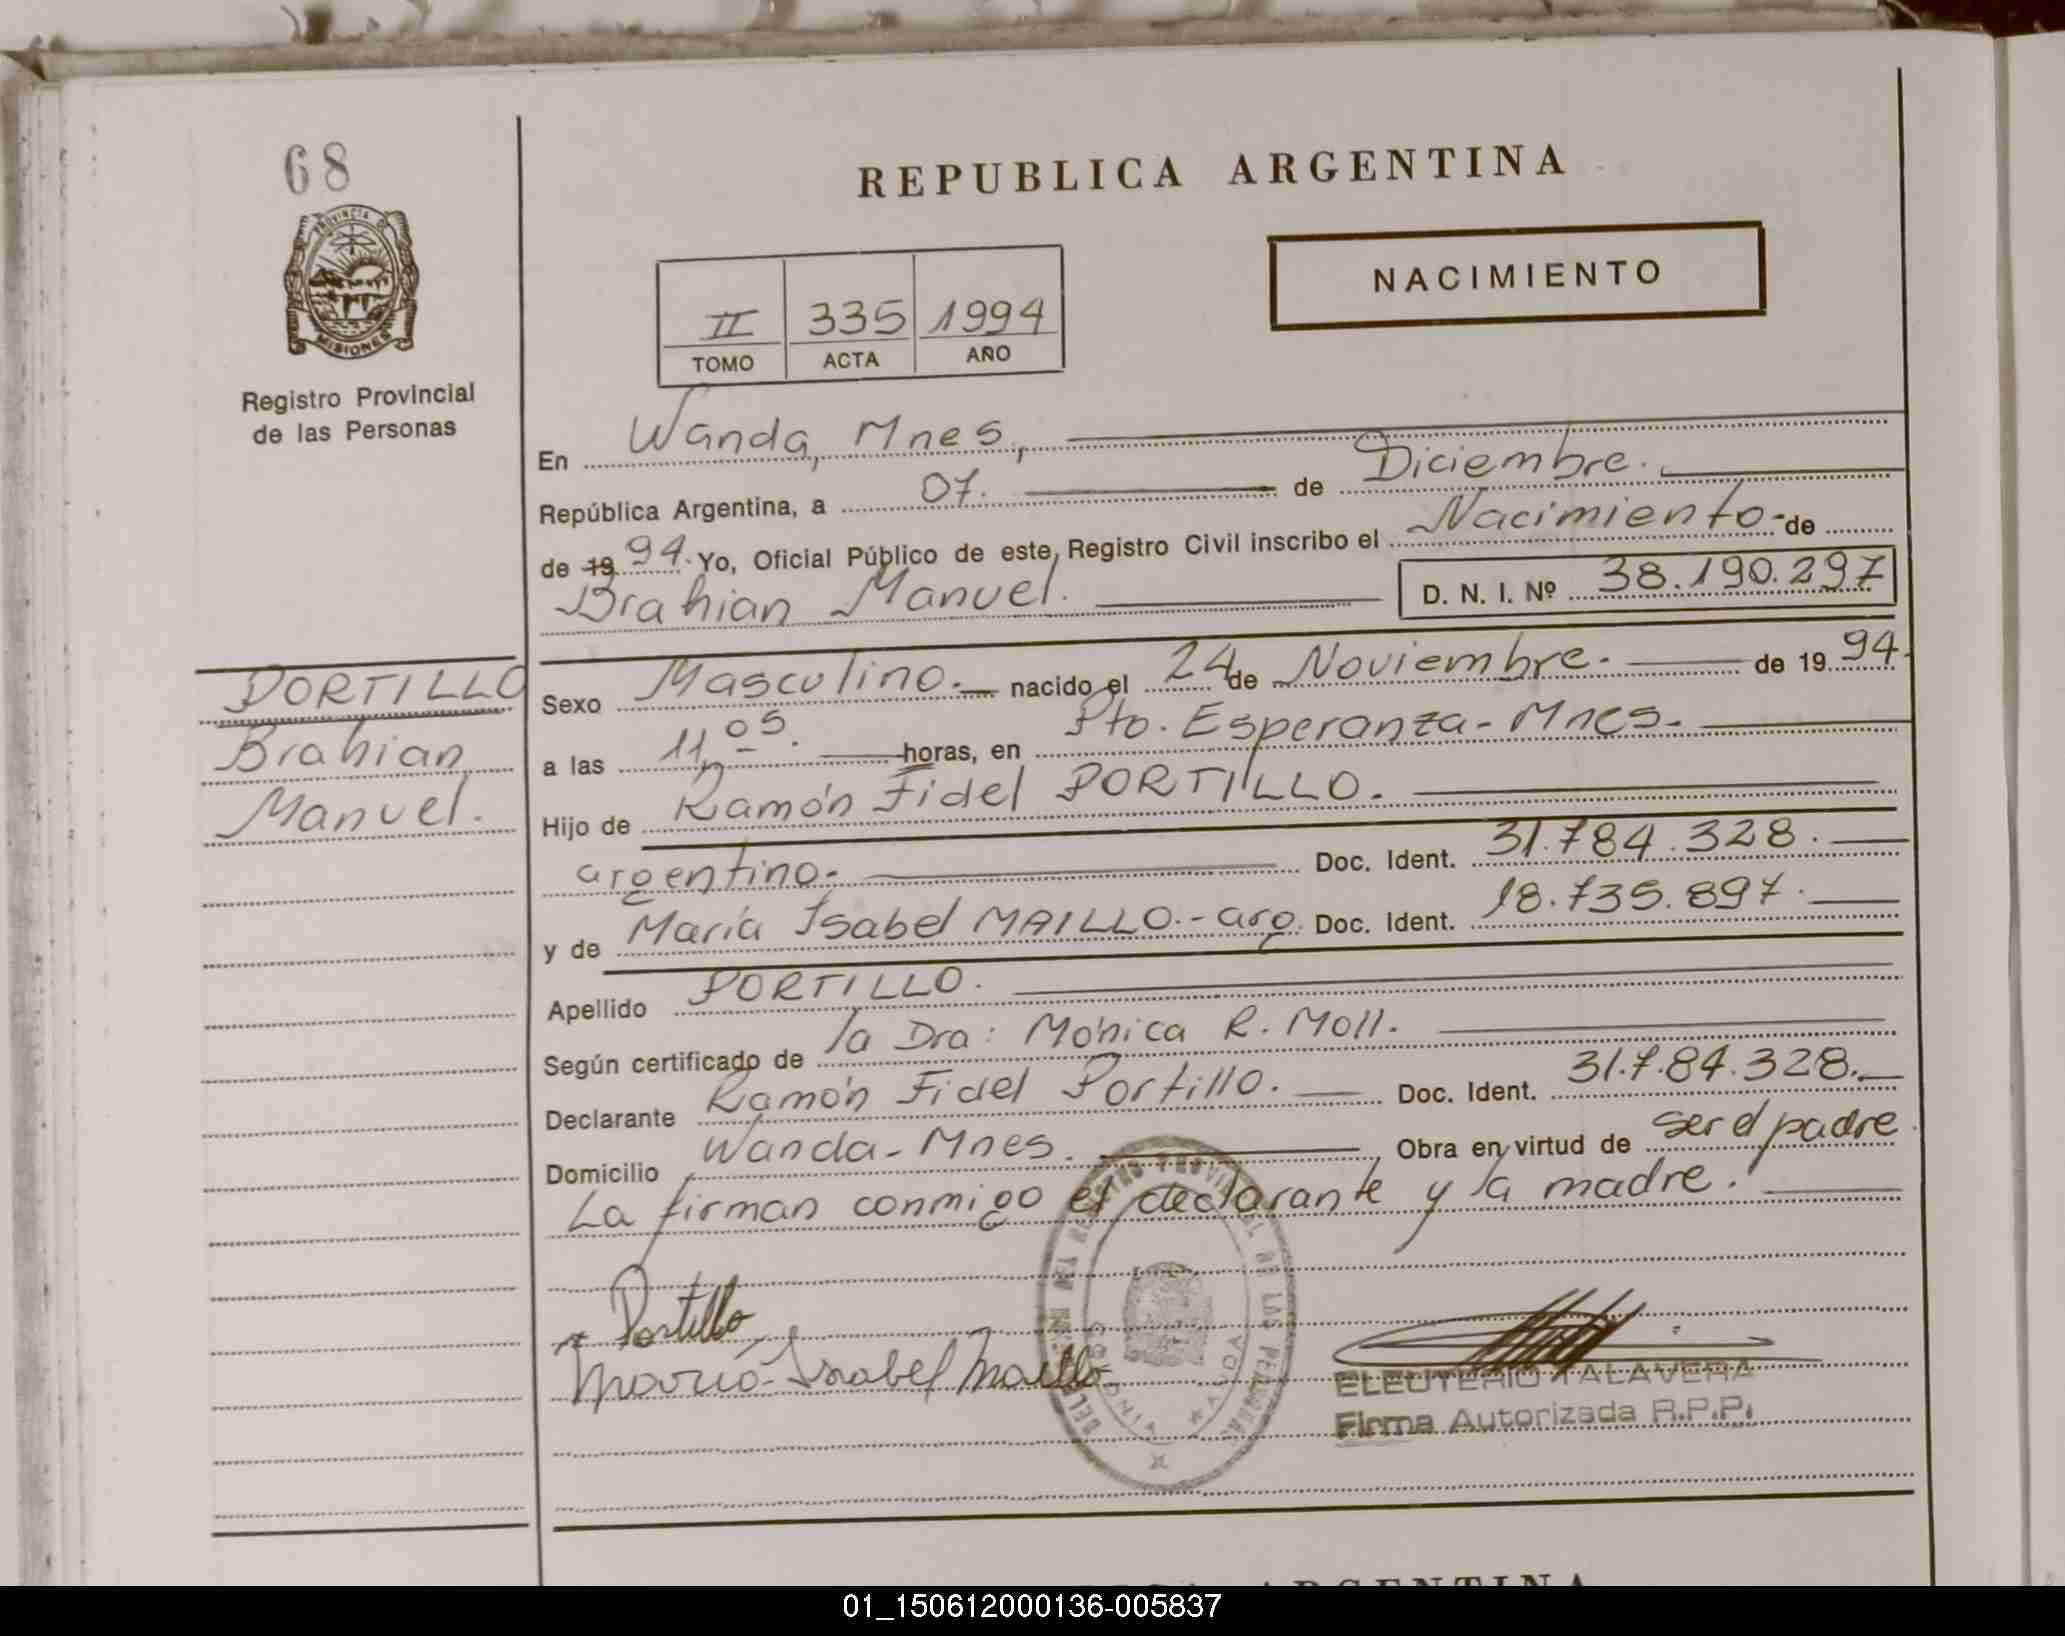 68
PROVINCIA DE
MISIONES
Registro Provincial
de las Personas
REPUBLICA ARGENTINA
NACIMIENTO
II 335 1994
TOMO ACTA AÑO
En Wanda, Mnes,
República Argentina, a 07. de Diciembre.
de 19 94. Yo, Oficial Público de este Registro Civil inscribo el Nacimiento- de
Brahian Manuel. D. N. I. Nº 38.190.297
PORTILLO
Brahian
Manuel.
Sexo Masculino.- nacido el 24 de Noviembre. de 19 94.
a las 11,05. horas, en Pto. Esperanza - Mnes.
Hijo de Ramón Fidel PORTILLO.
argentino. Doc. Ident. 31.784.328.
y de María Isabel MAILLO.- arg. Doc. Ident. 18.735.897.
Apellido PORTILLO.
Según certificado de la Dra: Mónica R. Moll.
Declarante Ramón Fidel Portillo. Doc. Ident. 31.7.84.328.
Domicilio Wanda - Mnes. Obra en virtud de ser el padre.
La firman conmigo el declarante y la madre.
Portillo
María Isabel Maillo
ELEUTERIO TALAVERA
Firma Autorizada R.P.P.
01_150612000136-005837